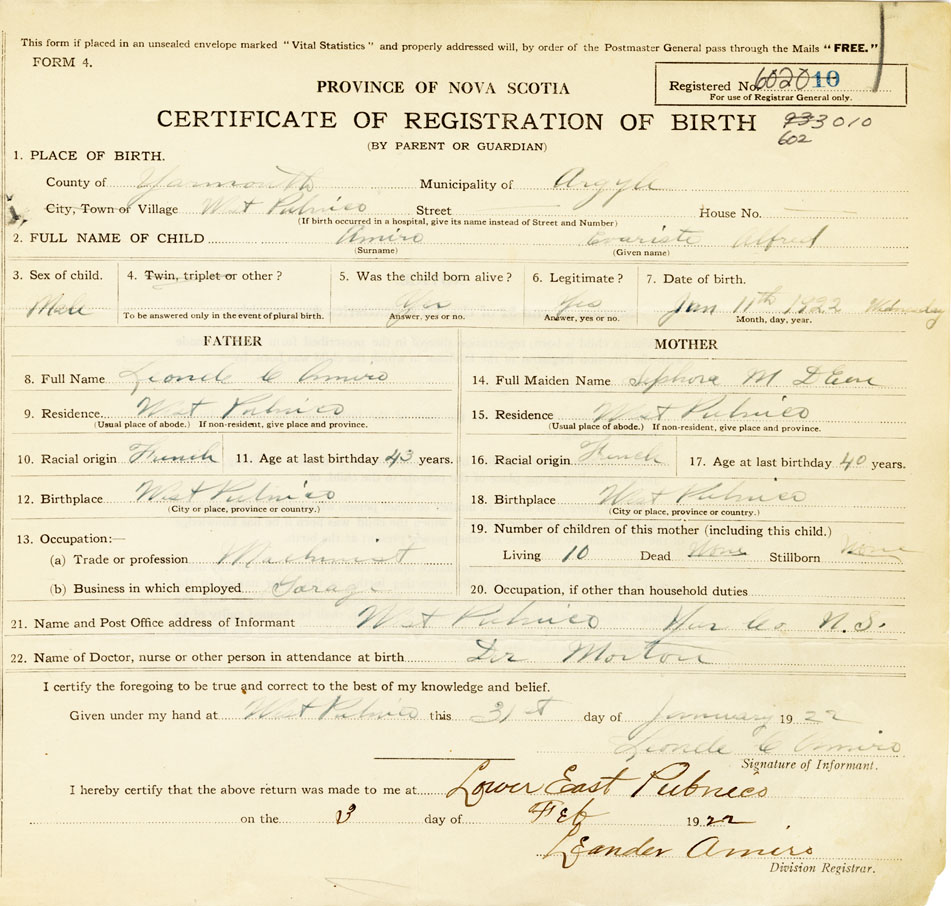 This form if placed in an unsealed envelope marked "Vital Statistics" and properly addressed will, by order of the Postmaster General pass through the Mails "FREE."
FORM 4.
PROVINCE OF NOVA SCOTIA
Registered No. 6020 10
For use of Registrar General only.
CERTIFICATE OF REGISTRATION OF BIRTH 933010
602
(BY PARENT OR GUARDIAN)
1. PLACE OF BIRTH.
County of Yarmouth Municipality of Argyle
City, Town or Village West Pubnico Street House No.
(If birth occurred in a hospital, give its name instead of Street and Number)
2. FULL NAME OF CHILD Amiro Evariste Alfred
(Surname) (Given name)
3. Sex of child. 4. Twin, triplet or other? 5. Was the child born alive? 6. Legitimate? 7. Date of birth.
Male Yes Yes Jan 11th 1922 Wednesday
To be answered only in the event of plural birth. Answer, yes or no. Answer, yes or no. Month, day, year.
FATHER MOTHER
8. Full Name Lionele C Amiro 14. Full Maiden Name Sephora M D'Eon
9. Residence West Pubnico 15. Residence West Pubnico
(Usual place of abode.) If non-resident, give place and province. (Usual place of abode.) If non-resident, give place and province.
10. Racial origin French 11. Age at last birthday 43 years. 16. Racial origin French 17. Age at last birthday 40 years.
12. Birthplace West Pubnico 18. Birthplace West Pubnico
(City or place, province or country.) (City or place, province or country.)
13. Occupation:— 19. Number of children of this mother (including this child.)
(a) Trade or profession Machinist Living 10 Dead None Stillborn None
(b) Business in which employed Garage 20. Occupation, if other than household duties
21. Name and Post Office address of Informant West Pubnico Yar Co N.S.
22. Name of Doctor, nurse or other person in attendance at birth Dr Morton
I certify the foregoing to be true and correct to the best of my knowledge and belief.
Given under my hand at West Pubnico this 31st day of January 1922
Lionele C Amiro
Signature of Informant.
I hereby certify that the above return was made to me at Lower East Pubnico
on the 3 day of Feb 1922
Leander Amiro
Division Registrar.